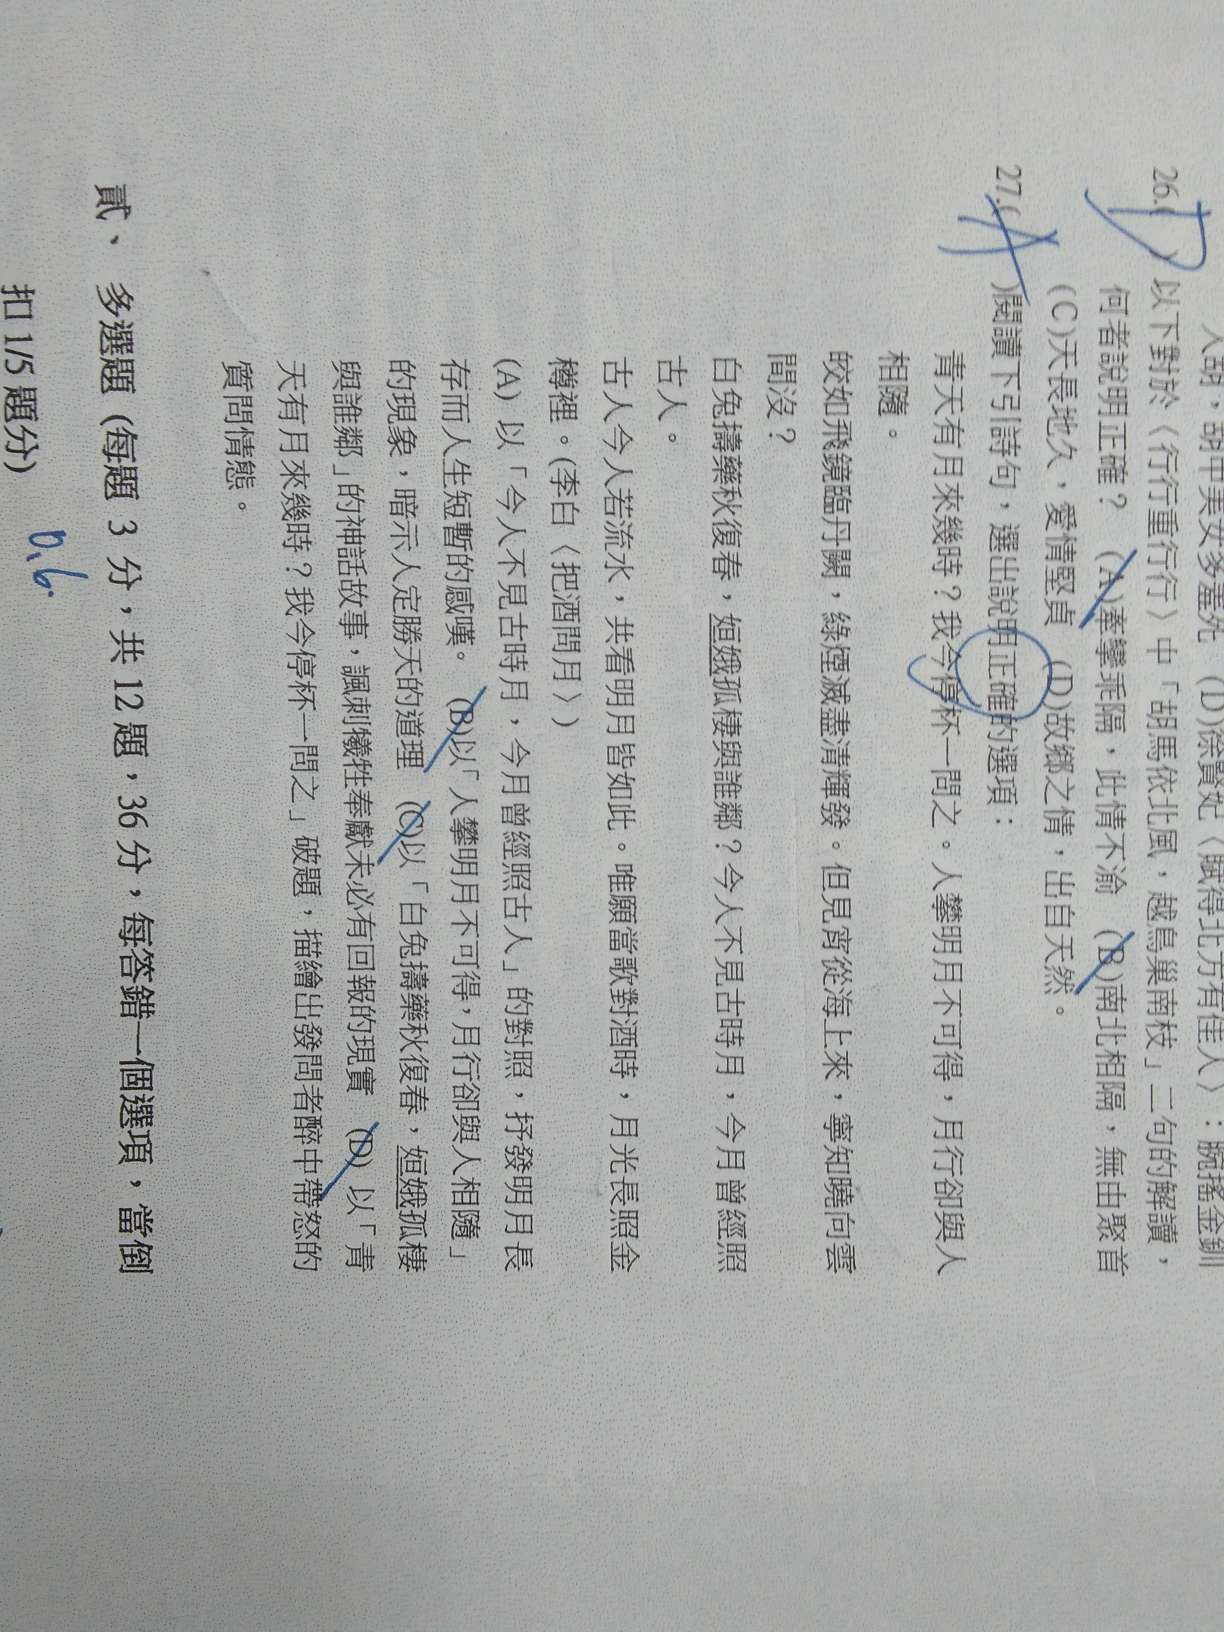 人胡，胡中美女多羞死 (D)徐賢妃〈賦得北方有佳人〉：腕搖金釧
26.( D )以下對於〈行行重行行〉中「胡馬依北風，越鳥巢南枝」二句的解讀，
何者說明正確？ (A)牽攣乖隔，此情不渝 (B)南北相隔，無由聚首
(C)天長地久，愛情堅貞 (D)故鄉之情，出自天然。
27.( A )閱讀下引詩句，選出說明正確的選項：
青天有月來幾時？我今停杯一問之。人攀明月不可得，月行卻與人
相隨。
皎如飛鏡臨丹闕，綠煙滅盡清輝發。但見宵從海上來，寧知曉向雲
間沒？
白兔擣藥秋復春，姮娥孤棲與誰鄰？今人不見古時月，今月曾經照
古人。
古人今人若流水，共看明月皆如此。唯願當歌對酒時，月光長照金
樽裡。(李白〈把酒問月〉)
(A) 以「今人不見古時月，今月曾經照古人」的對照，抒發明月長
存而人生短暫的感嘆。 (B)以「人攀明月不可得，月行卻與人相隨」
的現象，暗示人定勝天的道理 (C)以「白兔擣藥秋復春，姮娥孤棲
與誰鄰」的神話故事，諷刺犧牲奉獻未必有回報的現實 (D) 以「青
天有月來幾時？我今停杯一問之」破題，描繪出發問者醉中帶怒的
質問情態。
貳、 多選題 (每題 3 分，共 12 題，36 分，每答錯一個選項，當倒
扣 1/5 題分)
0.6